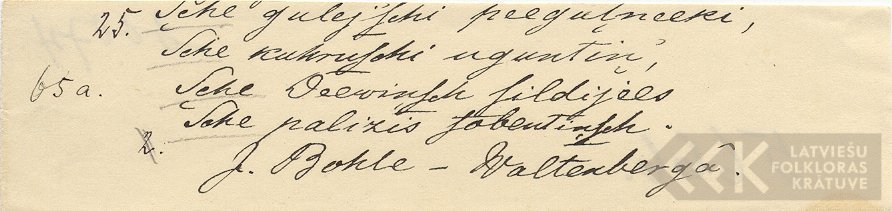 25. Sche gulejschi peeguļneeki,
Sche kuhruschi uguntiņ',
65a. Sche Deewiņsch sildijees
Sche palizis sobentiņsch.
2.
J. Bohle – Waltenbergâ.
LATVIEŠU
FOLKLORAS
KRĀTUVE